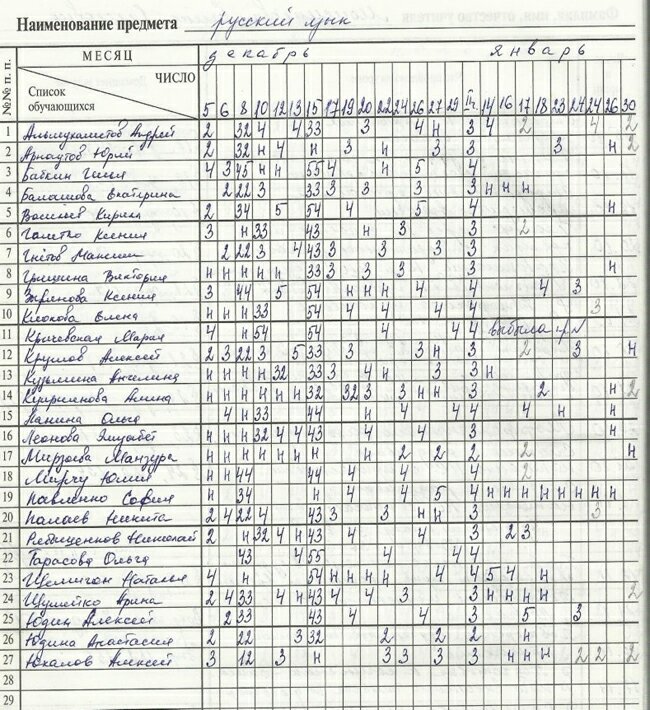 Наименование предмета русский язык
№№ п. п. МЕСЯЦ декабрь январь
ЧИСЛО
Список обучающихся
5 6 8 10 12 13 15 17 19 20 22 24 26 27 29 14 16 17 18 23 24 24 26 30
1 Андрей 2 32 4 4 33 3 4 н 3 4 2 4 2
2 Арнаутов Юрий 2 32 н 4 н 3 н 3 3 3 н 2
3 Бабкин Илья 4 3 45 н н 55 4 н 5 4
4 Балашова Екатерина 2 22 3 33 3 3 3 4 3 3 н н н
5 Васильев Кирилл 2 34 5 54 4 5 4 н
6 Ксения 3 н 33 43 н 3 3 2
7 Максим 2 22 3 4 43 3 3 3 3
8 Гришина Виктория н н н н н 33 3 3 3 3 н
9 Зырянова Ксения 3 44 5 54 н н н 4 4 4 3
10 Елена н н н 33 54 4 4 4 4 3
11 Кричевская Мария 4 н 54 54 4 4 4 выбыла
12 Круглов Алексей 2 3 22 3 5 33 3 3 н 3 2 3 н
13 Кузьмина Ангелина н н н н 32 33 3 4 н 3 3 н
14 Амина н н н н н н 32 32 3 3 н н 3 2 н 2
15 Ланина Ольга 4 н 33 44 н 4 4 4 4 н н
16 Леонова Элизабет н н н 32 4 4 43 4 4 3 н
17 Мирзоева Манзура н н н н н н н н 2 2 2 2 2 н
18 Юлия н н 44 44 4 4 4 2
19 Павленко София н 34 н 4 4 5 4 н н н н н н н н
20 Палаев Никита 2 4 22 4 43 3 3 н н 3 3
21 Николай 2 н 32 4 н 43 4 4 3 2 3
22 Тарасова Ольга 43 4 55 4 4 4
23 Наталья 4 н 54 н н н н 4 4 5 4 н
24 Шумейко Арина 2 4 33 4 н 43 4 4 3 3 н н н н 2
25 Юдин Алексей 2 33 43 4 4 3 5 3
26 Юдина Анастасия 2 22 3 32 2 2 2 н
27 Юкалов Алексей 3 12 3 н 3 3 3 3 н н н 2 2 2
28
29